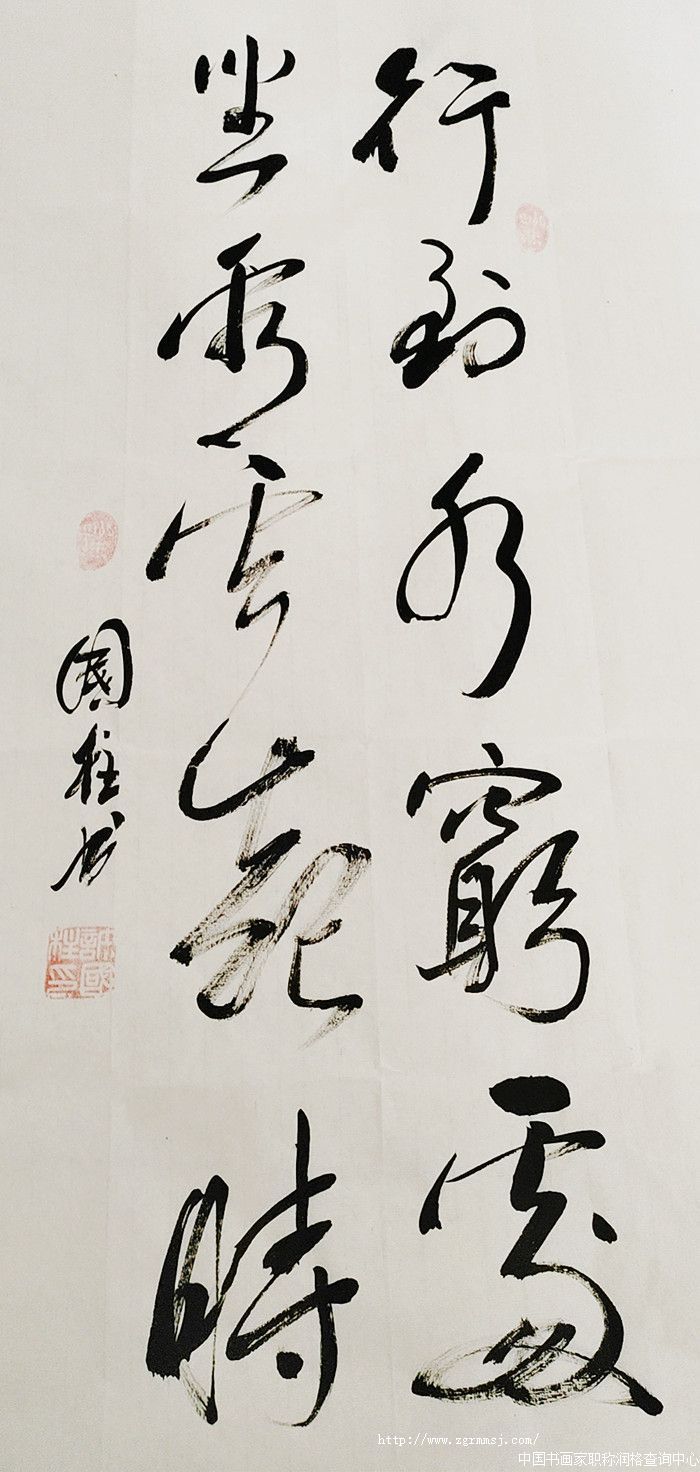 行到水窮處
坐看雲起時
國柱書
http://www.zgrmmsj.com/
中国书画家职称润格查询中心